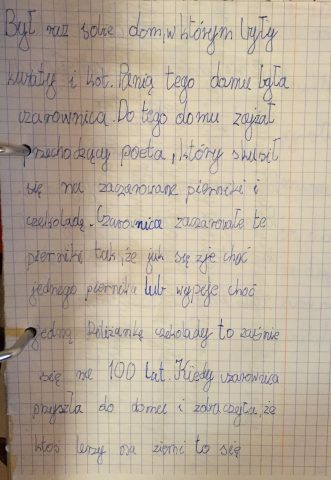 Był raz sobie dom, w którym były
kwiaty i kot. Panią tego domu była
czarownica. Do tego domu zajżał
przechodzący poeta, który skusił
się na zaczarowane pierniki i
czekoladę. Czarownica zaczarowała te
pierniki tak, że jak się zje choć
jednego piernika lub wypije choć
jedną feliżankę czekolady to zaśnie
się na 100 lat. Kiedy czarownica
przyszła do domu i zobaczyła, że
ktoś leży na ziemi to się